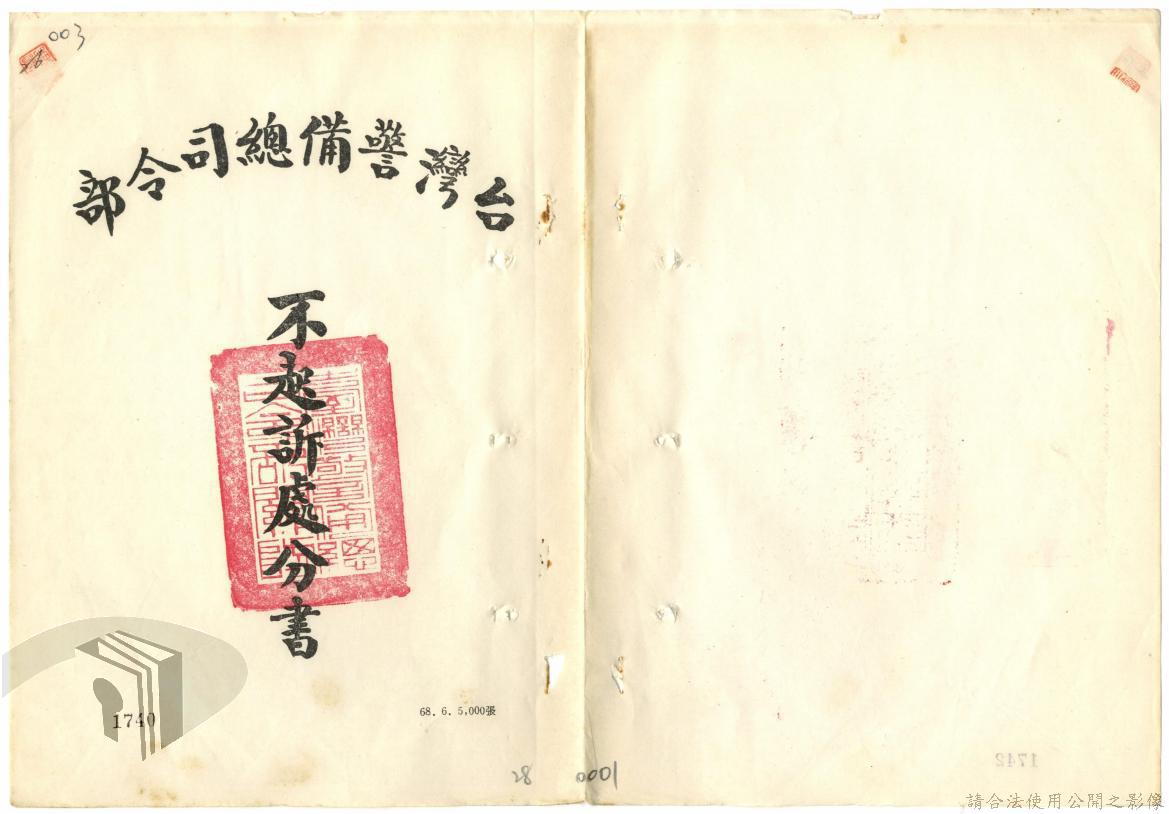 003
台灣警備總司令部
不起訴處分書
1740
68. 6. 5,000張
28 0001
1742
請合法使用公開之影像